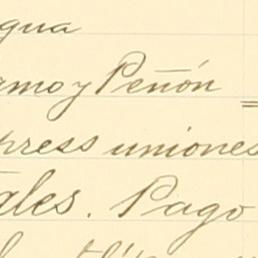 gua
amo y Peñón
press uniones
ales. Pago